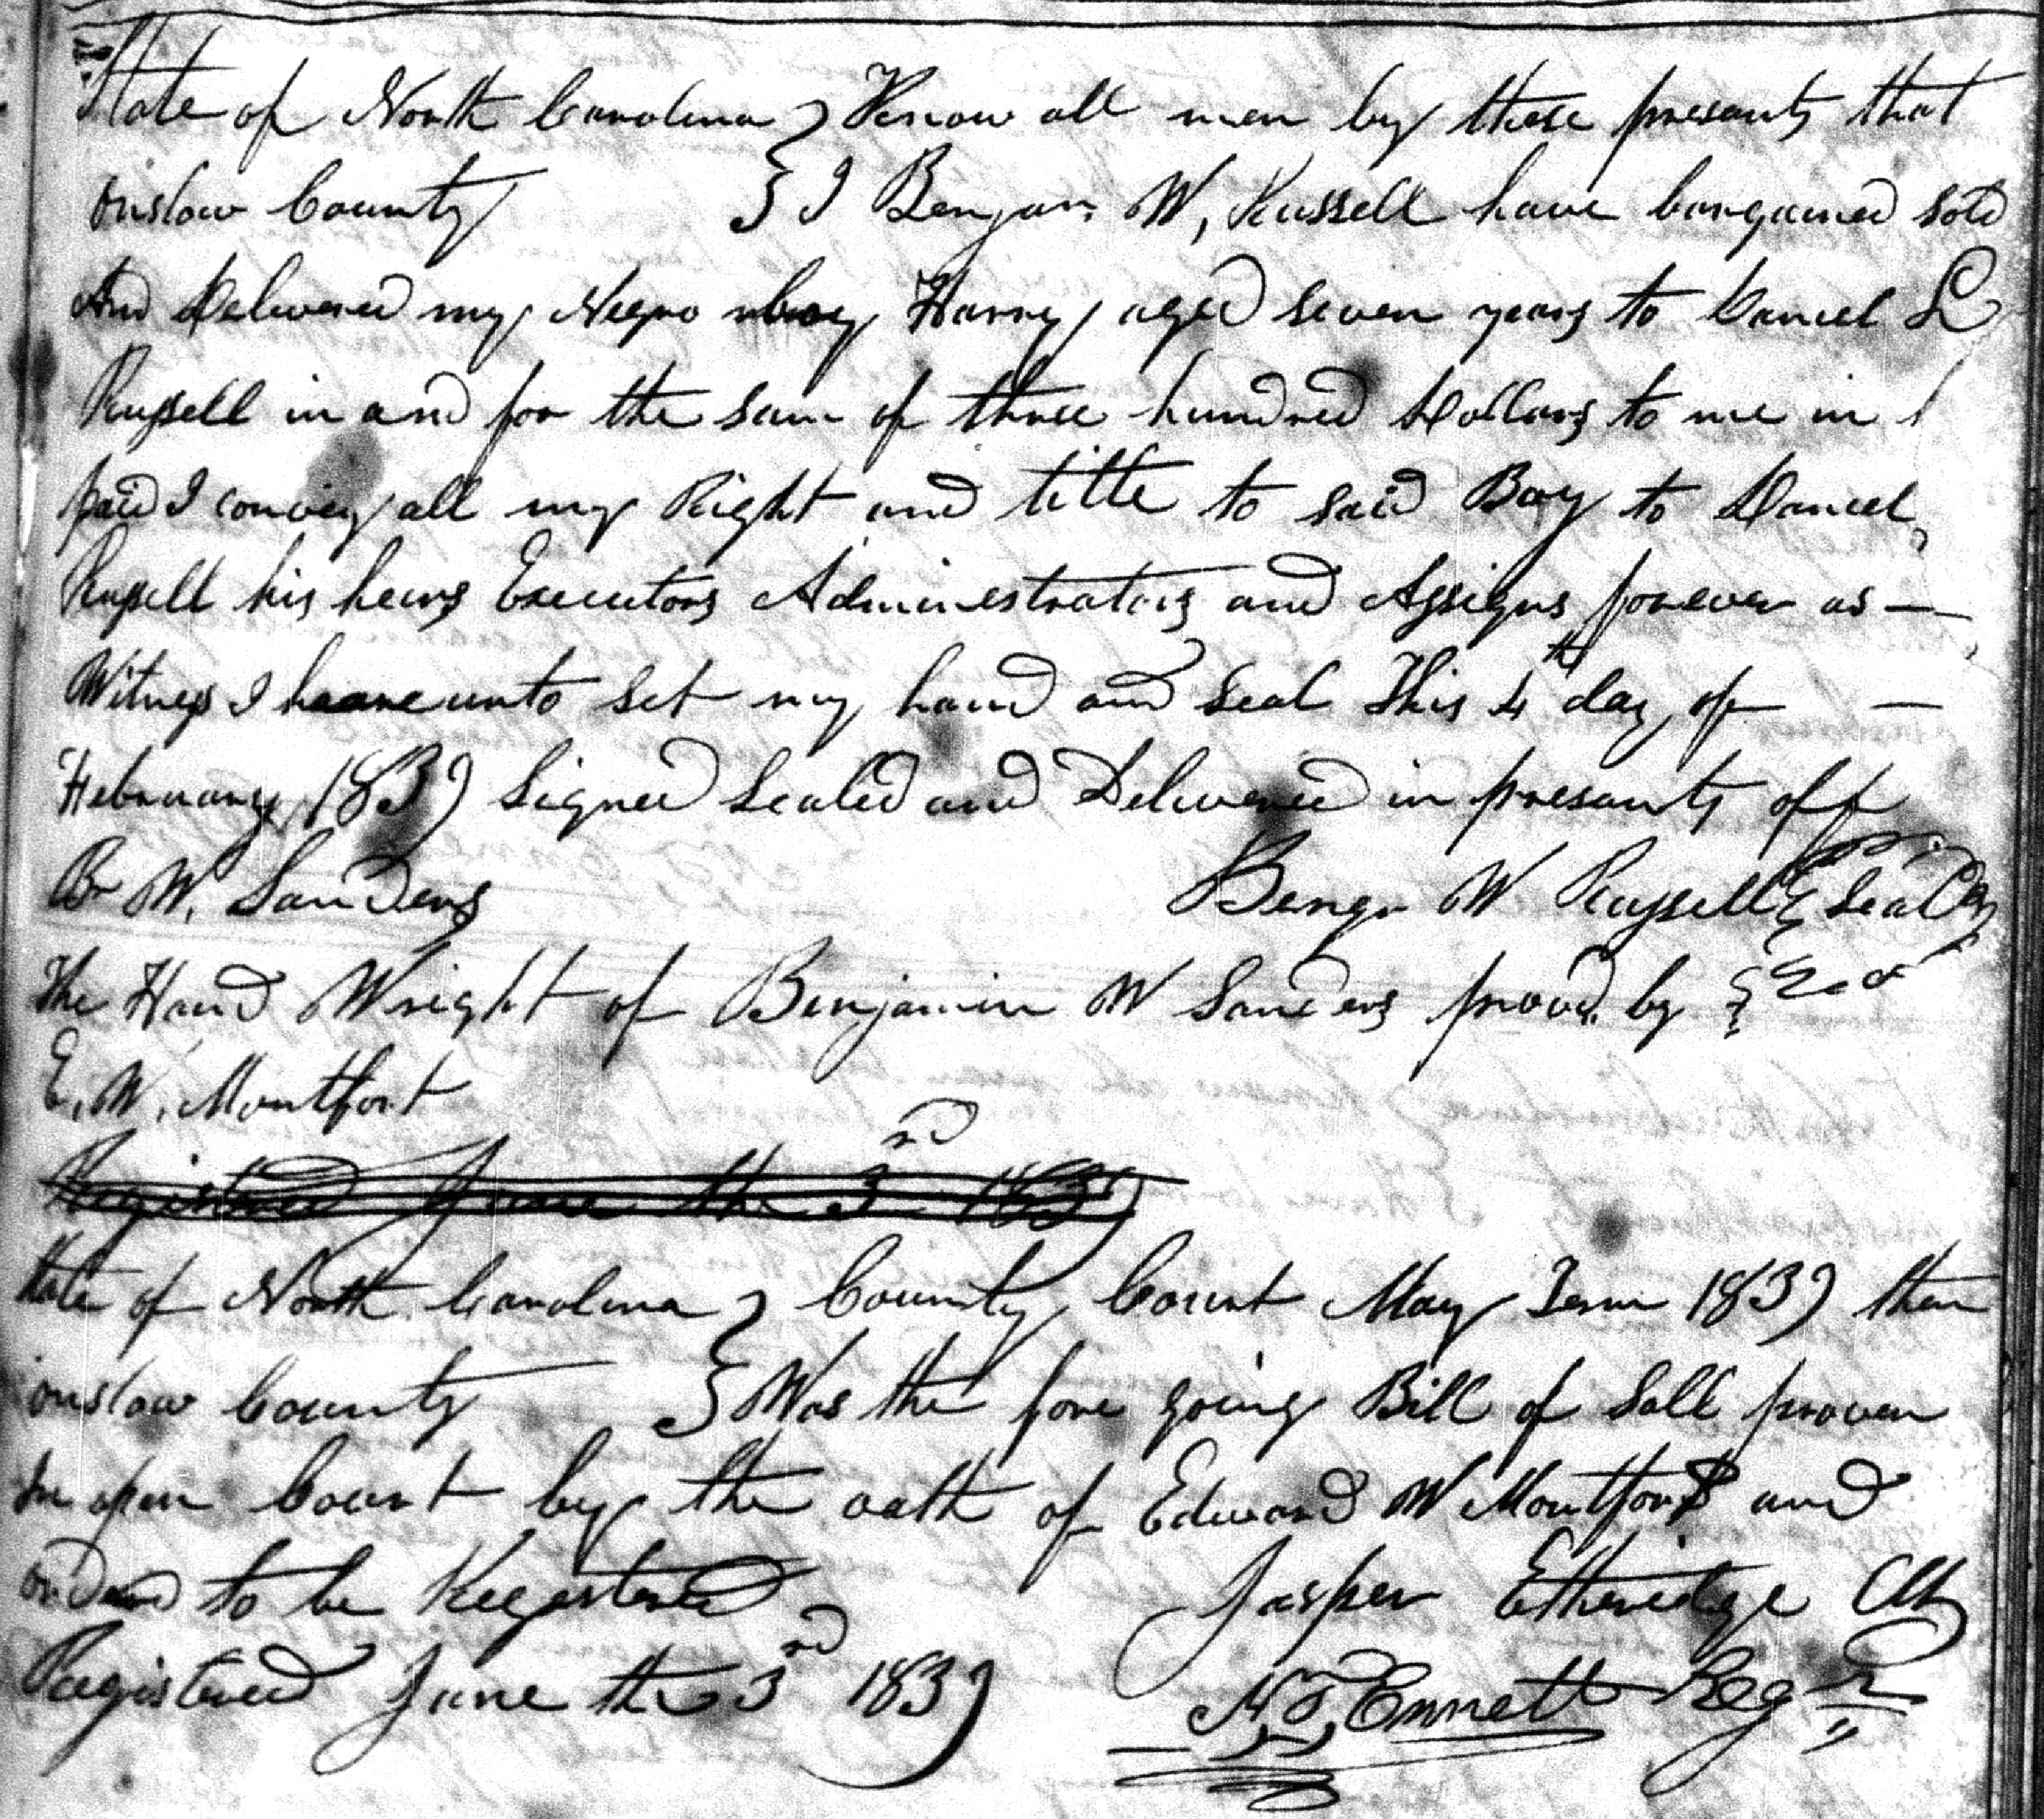 State of North Carolina } Know all men by these presants that
onslow County } I Benjan W, Russell have bargained sold
And Delivered my Negro boy Harry aged seven years to Daniel L
Russell in and for the sum of three hundred Dollars to me in
paid I convey all my Right and title to said Boy to Daniel
Russell his heirs Executors Administrators and Assigns forever as —
Witness I hereunto set my hand and seal This 4th day of —
February 1839 Signed Sealed and Delivered in presants off
B W. Sanders Benjn W Russell {Seal}
The Hand Wright of Benjamin W Sanders provd. by }
E. W. Montfort
Registered June the 3rd 1839
State of North Carolina } County Court May Term 1839 then
onslow County } Was the fore going Bill of Sall proven
In open Court by the oath of Edward W Montfort and
orderd to be Registered Jasper Etheridge Clk
Registered June the 3rd 1839 N, T, Ennett Regr